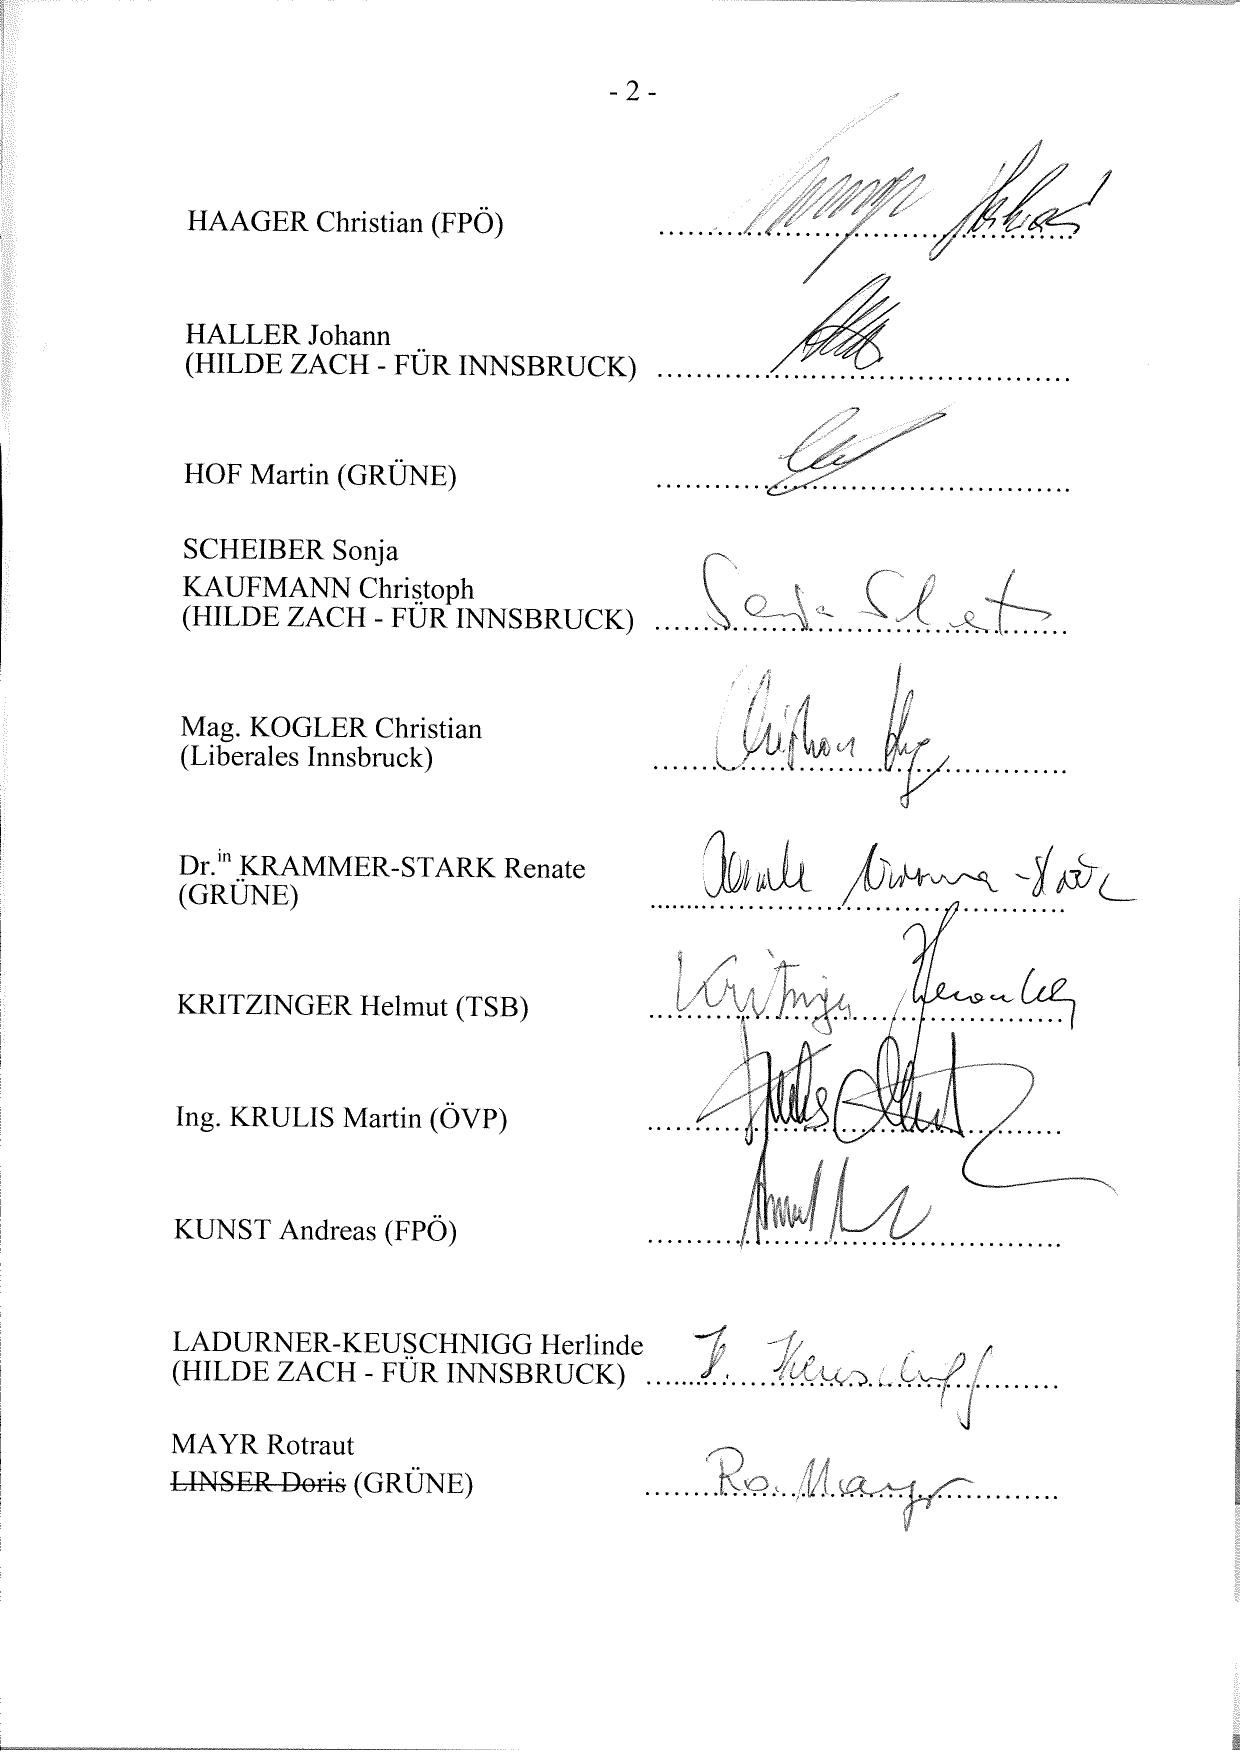 - 2 -
HAAGER Christian (FPÖ)
HALLER Johann
(HILDE ZACH - FÜR INNSBRUCK)
HOF Martin (GRÜNE)
SCHEIBER Sonja
KAUFMANN Christoph
(HILDE ZACH - FÜR INNSBRUCK)
Mag. KOGLER Christian
(Liberales Innsbruck)
Dr.in KRAMMER-STARK Renate
(GRÜNE)
KRITZINGER Helmut (TSB)
Ing. KRULIS Martin (ÖVP)
KUNST Andreas (FPÖ)
LADURNER-KEUSCHNIGG Herlinde
(HILDE ZACH - FÜR INNSBRUCK)
MAYR Rotraut
LINSER Doris (GRÜNE) Ro. Mayr